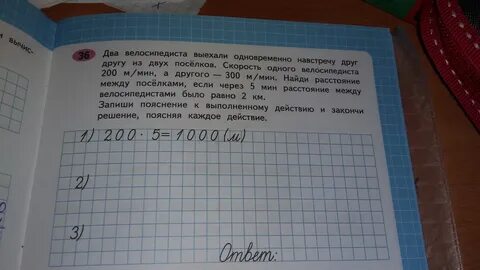 36 Два велосипедиста выехали одновременно навстречу друг
другу из двух посёлков. Скорость одного велосипедиста
200 м/мин, а другого — 300 м/мин. Найди расстояние
между посёлками, если через 5 мин расстояние между
велосипедистами было равно 2 км.
Запиши пояснение к выполненному действию и закончи
решение, поясняя каждое действие.
1) 200 · 5 = 1000 (м)
2)
3)
Ответ: